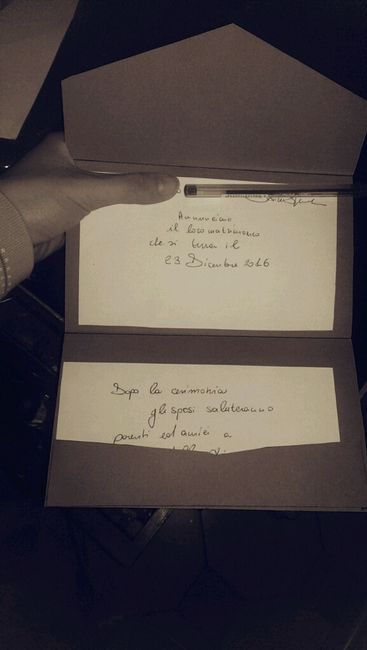 Annunciano
il loro matrimonio
che si terrà il
23 Dicembre 2016
Dopo la cerimonia
gli sposi saluteranno
parenti ed amici a